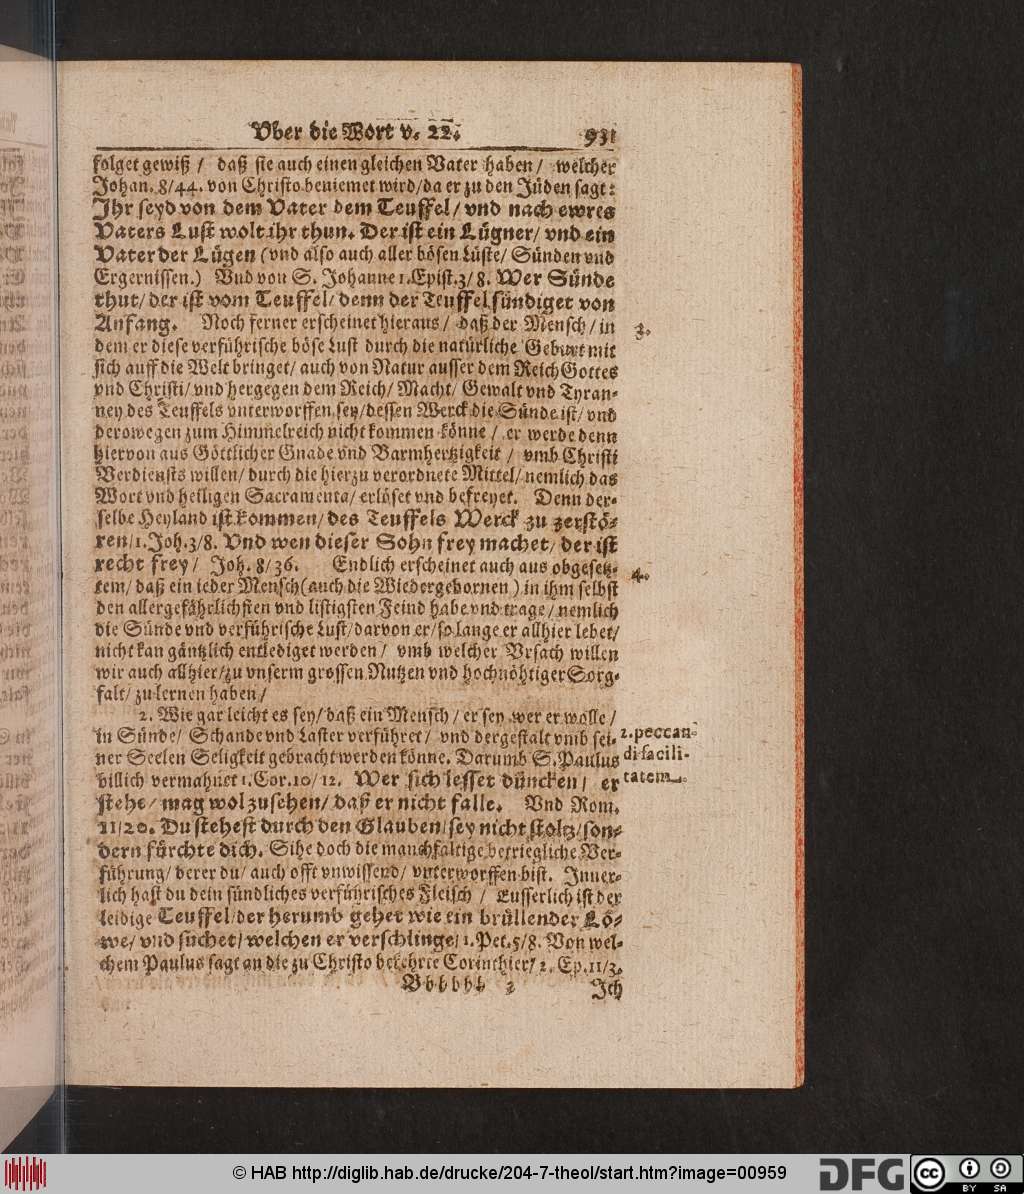 Vber die Wort v. 22. 931
folget gewiß / daß sie auch einen gleichen Vater haben / welcher
Johan. 8/44. von Christo beniemet wird/da er zu den Jüden sagt:
Ihr seyd von dem Vater dem Teuffel/ vnd nach ewres
Vaters Lust wolt ihr thun. Der ist ein Lügner/ vnd ein
Vater der Lügen (vnd also auch aller bösen Lüste/ Sünden vnd
Ergernissen.) Vnd von S. Johanne 1.Epist.3/8. Wer Sünde
thut/ der ist vom Teuffel/ denn der Teuffel sündiget von
Anfang. Noch ferner erscheinet hieraus/ daß der Mensch/ in
3.
dem er diese verführische böse Lust durch die natürliche Geburt mit
sich auff die Welt bringet/ auch von Natur ausser dem Reich Gottes
vnd Christi/ vnd hergegen dem Reich/ Macht/ Gewalt vnd Tyran-
ney des Teuffels vnterworffen sey/ dessen Werck die Sünde ist/ vnd
derowegen zum Himmelreich nicht kommen könne / er werde denn
hiervon aus Göttlicher Gnade vnd Barmhertzigkeit / vmb Christi
Verdiensts willen/ durch die hierzu verordnete Mittel/ nemlich das
Wort vnd heiligen Sacramenta/ erlöset vnd befreyet. Denn der-
selbe Heyland ist kommen/ des Teuffels Werck zu zerstö-
ren/1.Joh.3/8. Vnd wen dieser Sohn frey machet/ der ist
recht frey/ Joh. 8/36. Endlich erscheinet auch aus obgesetz-
4.
tem/ daß ein ieder Mensch (auch die Wiedergebornen) in ihm selbst
den allergefährlichsten vnd listigsten Feind habe vnd trage/ nemlich
die Sünde vnd verführische Lust/ darvon er/ so lange er allhier lebet/
nicht kan gäntzlich entlediget werden/ vmb welcher Vrsach willen
wir auch allhier/ zu vnserm grossen Nutzen vnd hochnöhtiger Sorg-
falt/ zu lernen haben/
2. Wie gar leicht es sey/ daß ein Mensch/ er sey wer er wolle/
in Sünde/ Schande vnd Laster verführet/ vnd dergestalt vmb sei-
2. peccan-
ner Seelen Seligkeit gebracht werden könne. Darumb S. Paulus
di facili-
billich vermahnet 1.Cor.10/12. Wer sich lesset düncken/ er
tatem.
stehe/ mag wol zusehen/ daß er nicht falle. Vnd Rom.
11/20. Du stehest durch den Glauben/ sey nicht stoltz/ son-
dern fürchte dich. Sihe doch die manchfaltige betriegliche Ver-
führung/ derer du/ auch offt vnwissend/ vnterworffen bist. Inner-
lich hast du dein sündliches verführisches Fleisch / Eusserlich ist der
leidige Teuffel/ der herumb gehet wie ein brüllender Lö-
we/ vnd suchet/ welchen er verschlinge/ 1.Pet.5/8. Von wel-
chem Paulus sagt an die zu Christo bekehrte Corinthier/ 2. Ep.11/3.
Bbbbbb 2 Ich
© HAB http://diglib.hab.de/drucke/204-7-theol/start.htm?image=00959
DFG
cc BY SA